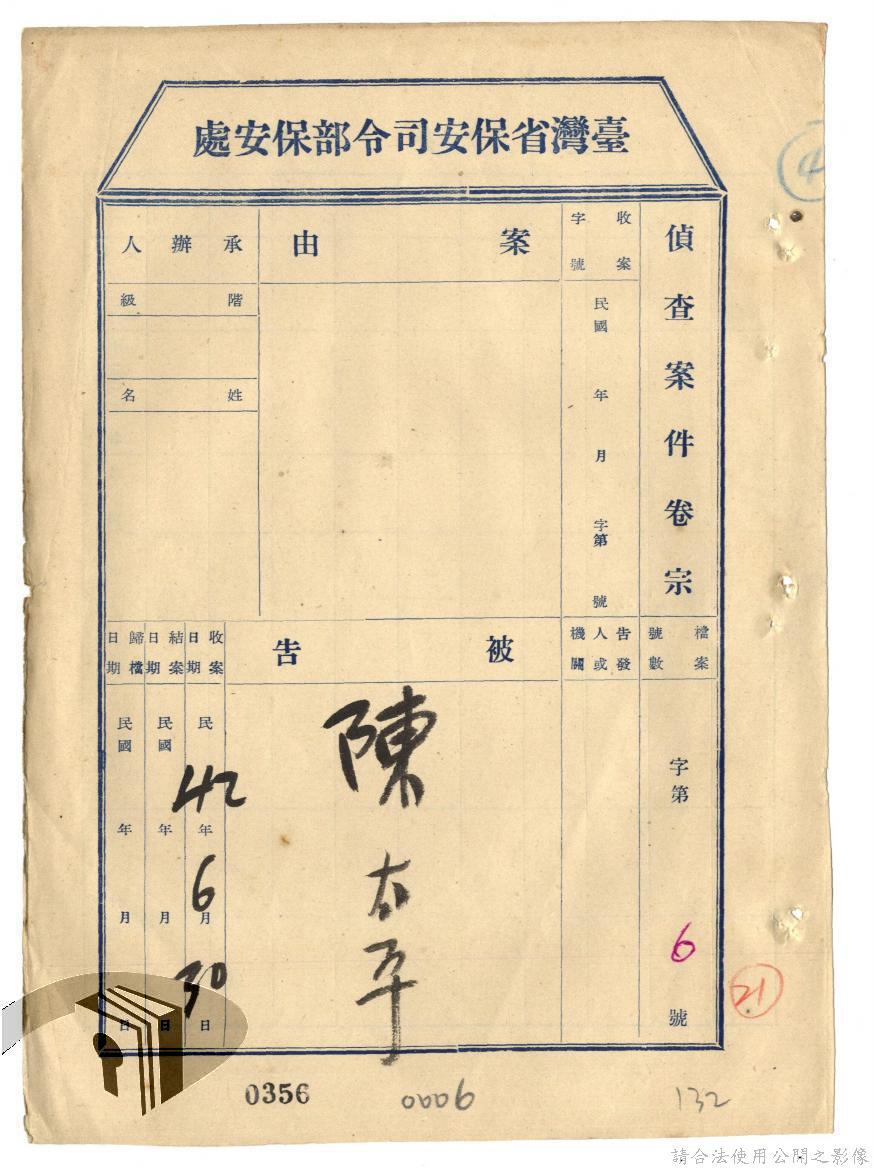 臺灣省保安司令部保安處
偵查案件卷宗
收案字號
民國 年 月 字第 號
案由
承辦人
階級
姓名
檔案號數
字第 6 號
告發人或機關
被告
陳太平
收案日期
民 42 年 6 月 30 日
結案日期
民國 年 月 日
歸檔日期
民國 年 月 日
4
21
0356
0006
132
請合法使用公開之影像